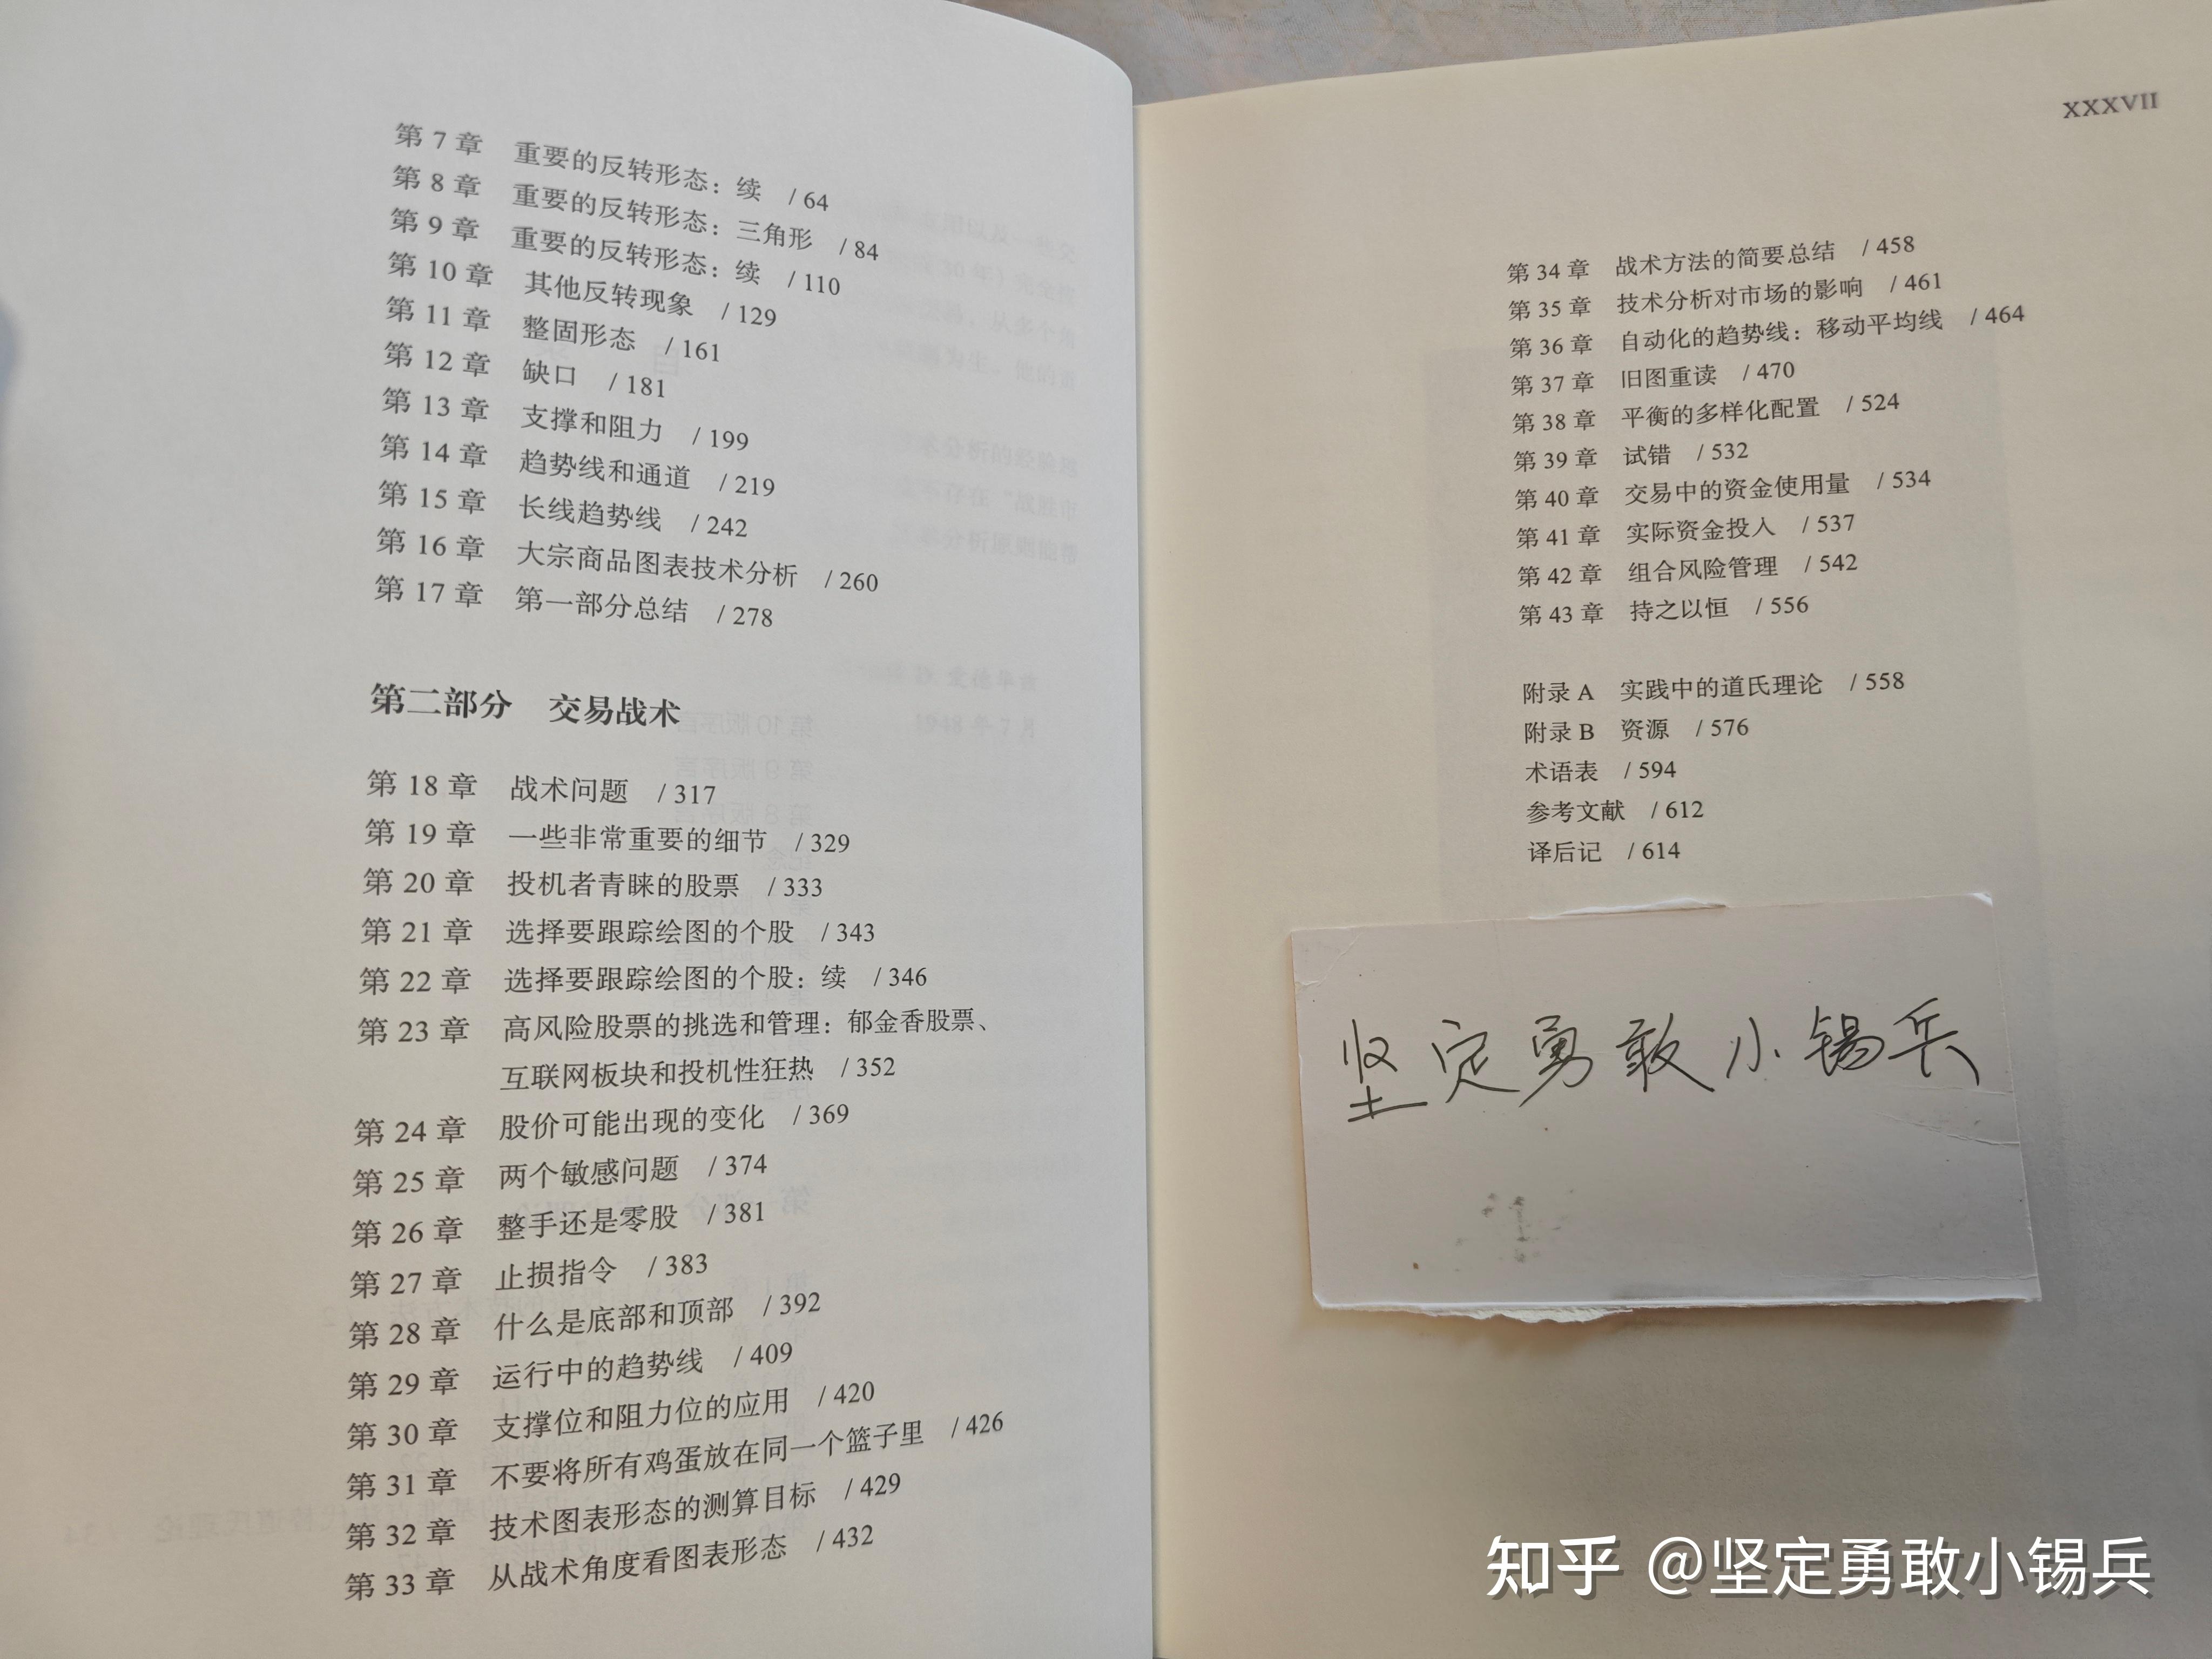 第 7 章 重要的反转形态：续 / 64
第 8 章 重要的反转形态：三角形 / 84
第 9 章 重要的反转形态：续 / 110
第 10 章 其他反转现象 / 129
第 11 章 整固形态 / 161
第 12 章 缺口 / 181
第 13 章 支撑和阻力 / 199
第 14 章 趋势线和通道 / 219
第 15 章 长线趋势线 / 242
第 16 章 大宗商品图表技术分析 / 260
第 17 章 第一部分总结 / 278
第二部分 交易战术
第 18 章 战术问题 / 317
第 19 章 一些非常重要的细节 / 329
第 20 章 投机者青睐的股票 / 333
第 21 章 选择要跟踪绘图的个股 / 343
第 22 章 选择要跟踪绘图的个股：续 / 346
第 23 章 高风险股票的挑选和管理：郁金香股票、
互联网板块和投机性狂热 / 352
第 24 章 股价可能出现的变化 / 369
第 25 章 两个敏感问题 / 374
第 26 章 整手还是零股 / 381
第 27 章 止损指令 / 383
第 28 章 什么是底部和顶部 / 392
第 29 章 运行中的趋势线 / 409
第 30 章 支撑位和阻力位的应用 / 420
第 31 章 不要将所有鸡蛋放在同一个篮子里 / 426
第 32 章 技术图表形态的测算目标 / 429
第 33 章 从战术角度看图表形态 / 432
XXXVII
第 34 章 战术方法的简要总结 / 458
第 35 章 技术分析对市场的影响 / 461
第 36 章 自动化的趋势线：移动平均线 / 464
第 37 章 旧图重读 / 470
第 38 章 平衡的多样化配置 / 524
第 39 章 试错 / 532
第 40 章 交易中的资金使用量 / 534
第 41 章 实际资金投入 / 537
第 42 章 组合风险管理 / 542
第 43 章 持之以恒 / 556
附录 A 实践中的道氏理论 / 558
附录 B 资源 / 576
术语表 / 594
参考文献 / 612
译后记 / 614
坚定勇敢小锡兵
知乎 @坚定勇敢小锡兵